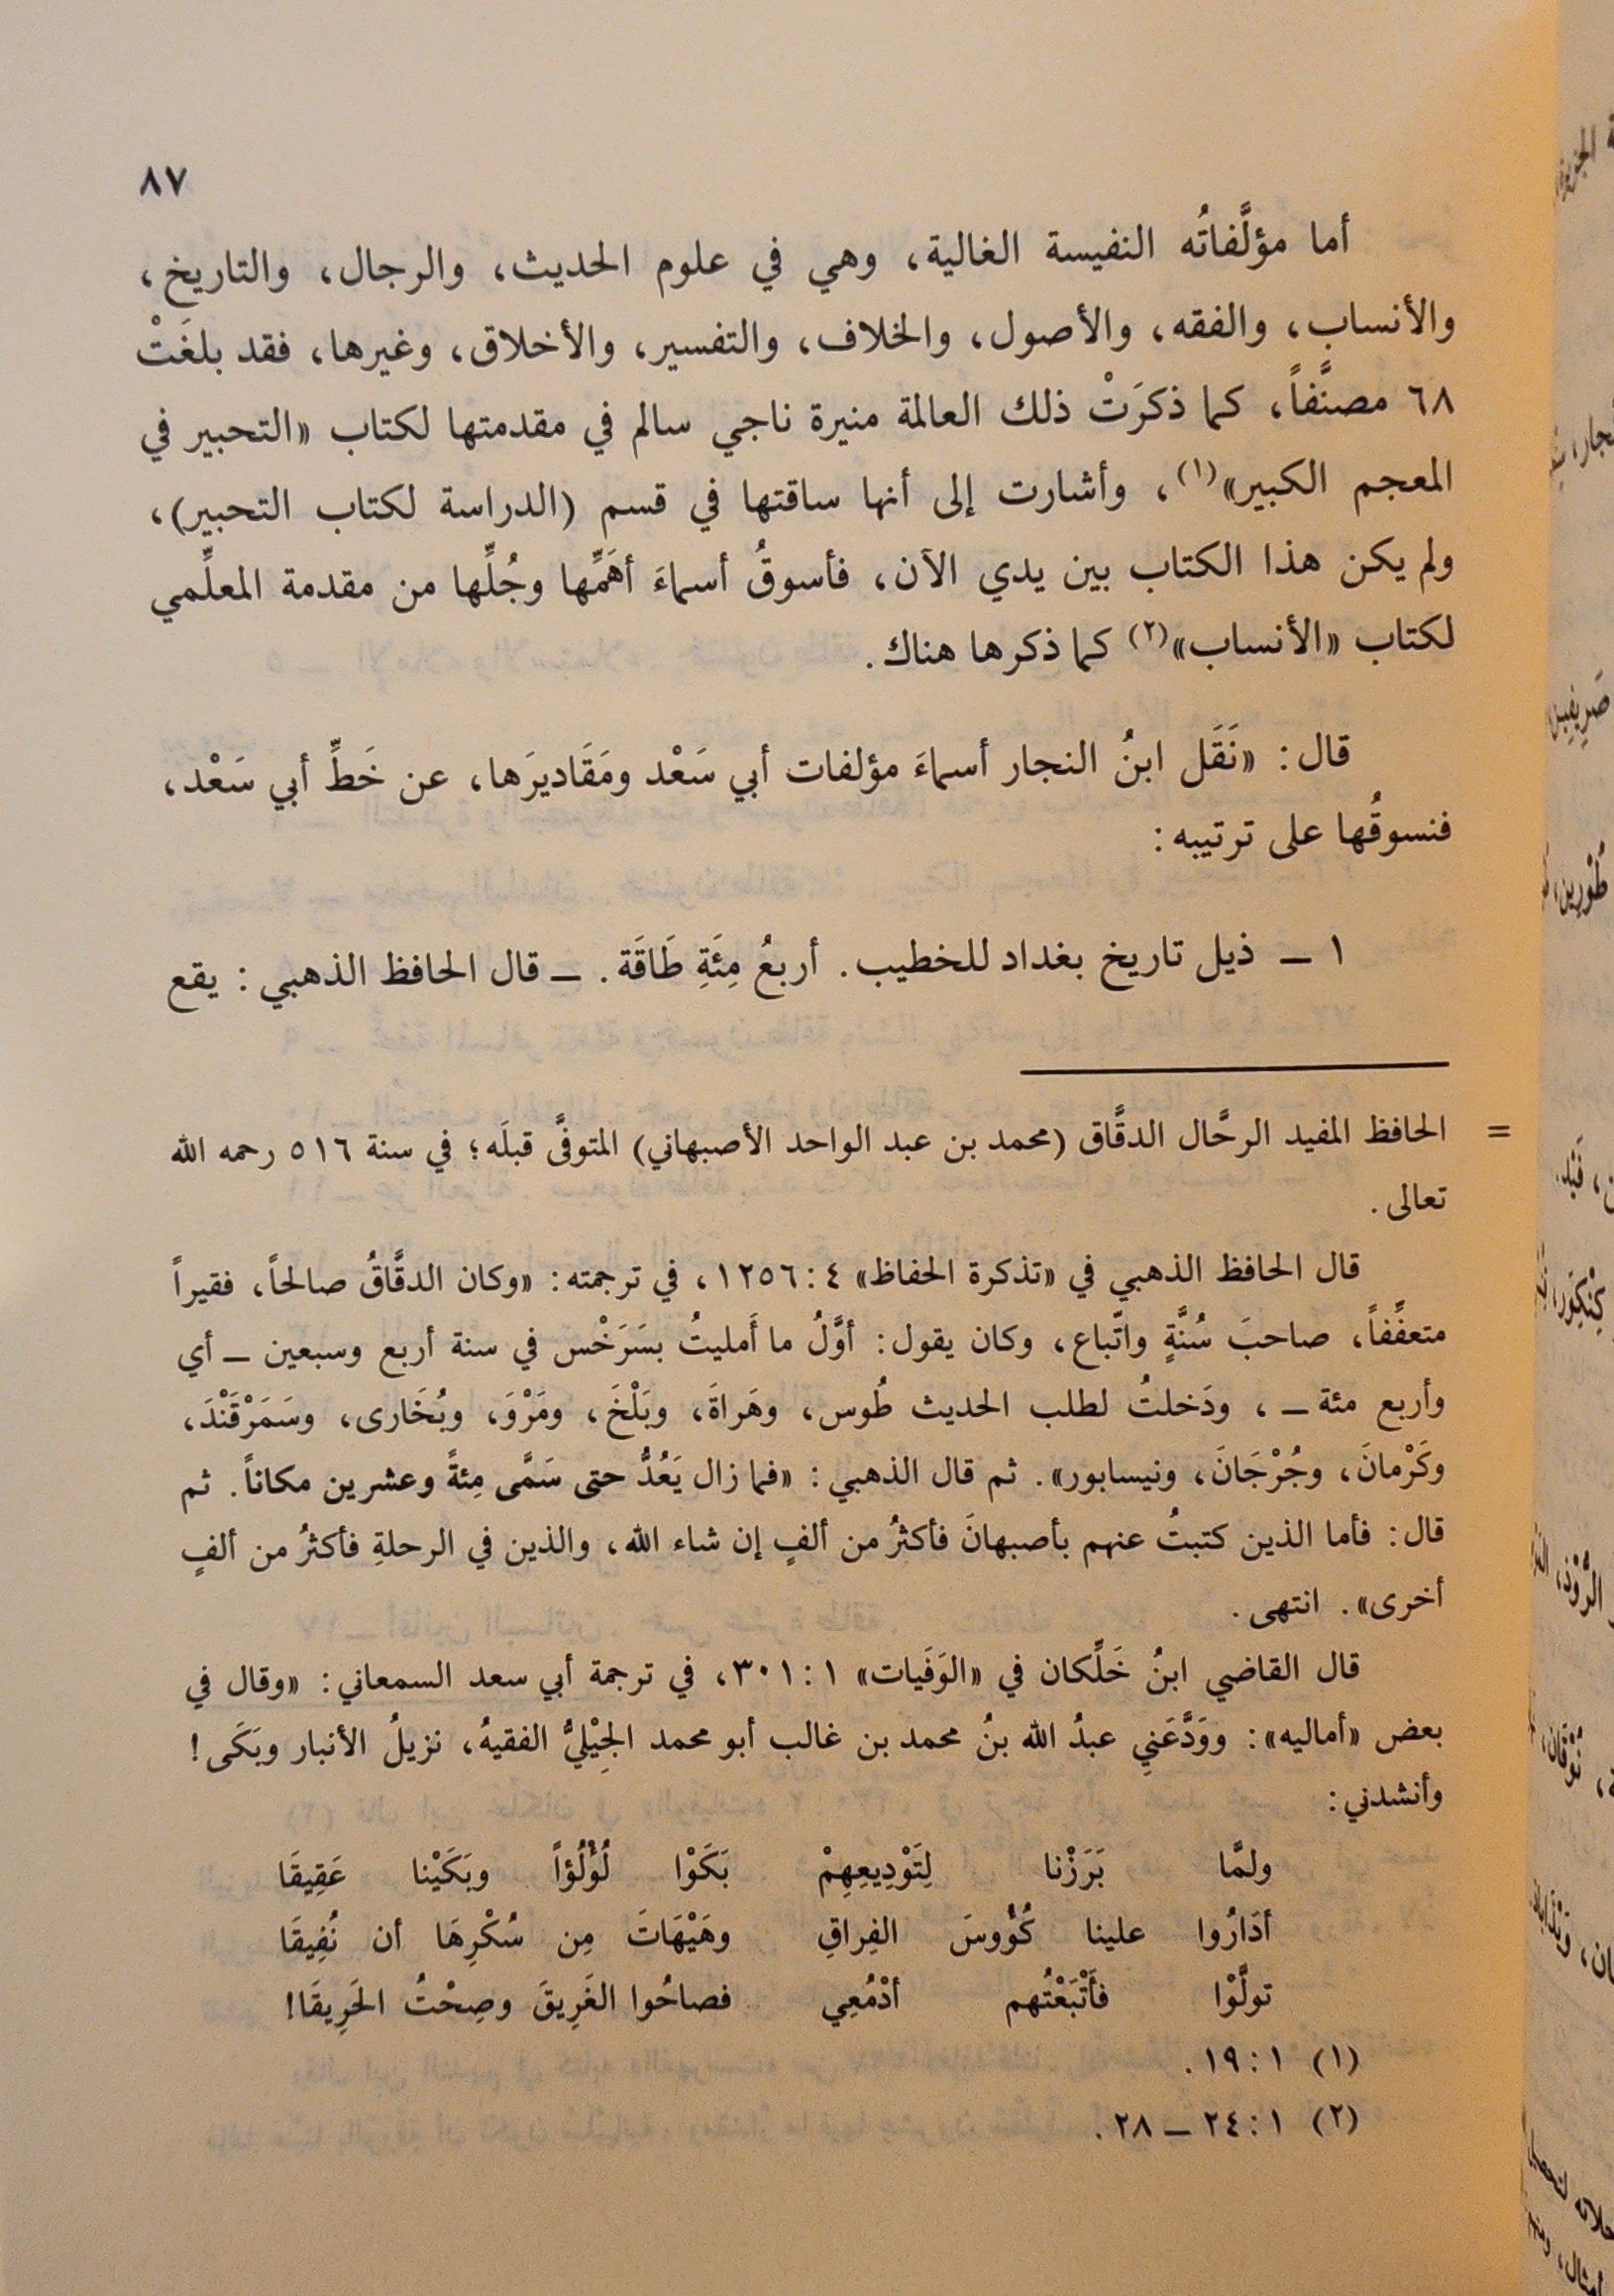 ٨٧
أما مؤلَّفاتُه النفيسة الغالية، وهي في علوم الحديث، والرجال، والتاريخ،
والأنساب، والفقه، والأصول، والخلاف، والتفسير، والأخلاق، وغيرها، فقد بلغَتْ
٦٨ مصنَّفاً، كما ذكرَتْ ذلك العالمة منيرة ناجي سالم في مقدمتها لكتاب «التحبير في
المعجم الكبير»(١)، وأشارت إلى أنها ساقتها في قسم (الدراسة لكتاب التحبير)،
ولم يكن هذا الكتاب بين يدي الآن، فأسوقُ أسماءَ أهَمِّها وجُلِّها من مقدمة المعلِّمي
لكتاب «الأنساب»(٢) كما ذكرها هناك.
قال: «نَقَل ابنُ النجار أسماءَ مؤلفات أبي سَعْد ومَقَاديرَها، عن خَطِّ أبي سَعْد،
فنسوقُها على ترتيبه:
١ ــ ذيل تاريخ بغداد للخطيب. أربعُ مِئَةِ طَاقَة. ــ قال الحافظ الذهبي: يقع
= الحافظ المفيد الرحَّال الدقَّاق (محمد بن عبد الواحد الأصبهاني) المتوفَّى قبلَه؛ في سنة ٥١٦ رحمه الله
تعالى.
قال الحافظ الذهبي في «تذكرة الحفاظ» ٤:١٢٥٦، في ترجمته: «وكان الدقَّاقُ صالحاً، فقيراً
متعفِّفاً، صاحبَ سُنَّةٍ واتّباع، وكان يقول: أوَّلُ ما أَمليتُ بسَرَخْس في سنة أربع وسبعين ــ أي
وأربع مئة ــ، ودَخلتُ لطلب الحديث طُوس، وهَراةَ، وبَلْخَ، ومَرْوَ، وبُخَارى، وسَمَرْقَنْدَ،
وكَرْمانَ، وجُرْجَانَ، ونيسابور». ثم قال الذهبي: «فما زال يَعُدُّ حتى سَمَّى مِئةً وعشرين مكاناً. ثم
قال: فأما الذين كتبتُ عنهم بأصبهانَ فأكثرُ من ألفٍ إن شاء الله، والذين في الرحلةِ فأكثرُ من ألفٍ
أخرى». انتهى.
قال القاضي ابنُ خَلِّكان في «الوَفَيات» ١:٣٠١، في ترجمة أبي سعد السمعاني: «وقال في
بعض «أماليه»: ووَدَّعَنِي عبدُ الله بنُ محمد بن غالب أبو محمد الجِيْليُّ الفقيهُ، نزيلُ الأنبار وبَكَى!
وأنشدني:
ولمَّا بَرَزْنا لِتَوْدِيعِهِمْ بَكَوْا لُؤْلُؤاً وبَكَيْنا عَقِيقَا
أدَارُوا علينا كُؤُوسَ الفِراقِ وهَيْهَاتَ مِن سُكْرِهَا أن نُفِيقَا
تولَّوْا فأَتْبَعْتُهم أدْمُعِي فصاحُوا الغَرِيقَ وصِحْتُ الحَرِيقَا!
(١) ١:١٩.
(٢) ١:٢٤ ــ ٢٨.